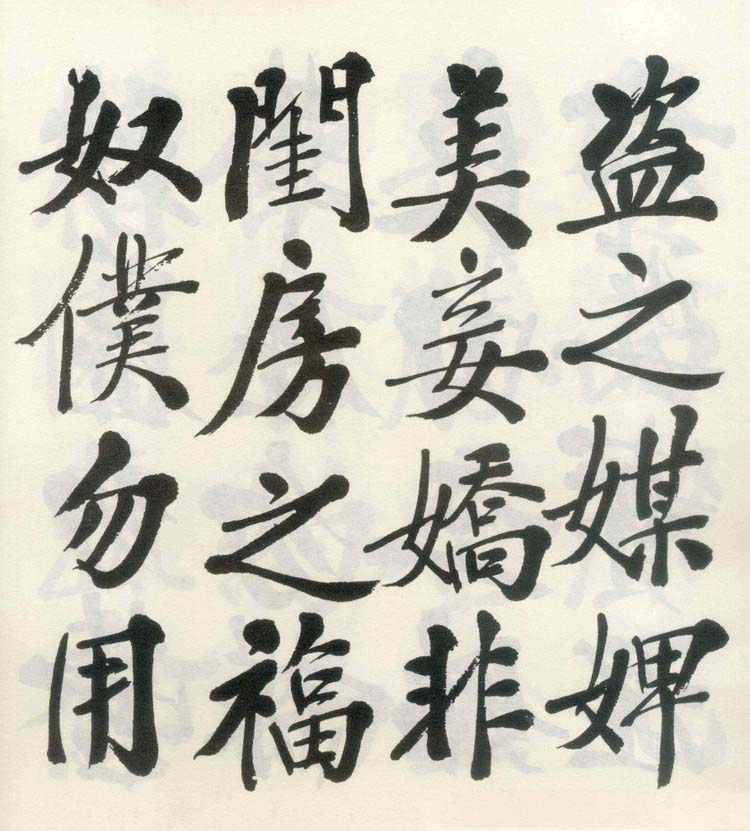 盗之媒婢
美妾嬌非
閨房之福
奴僕勿用